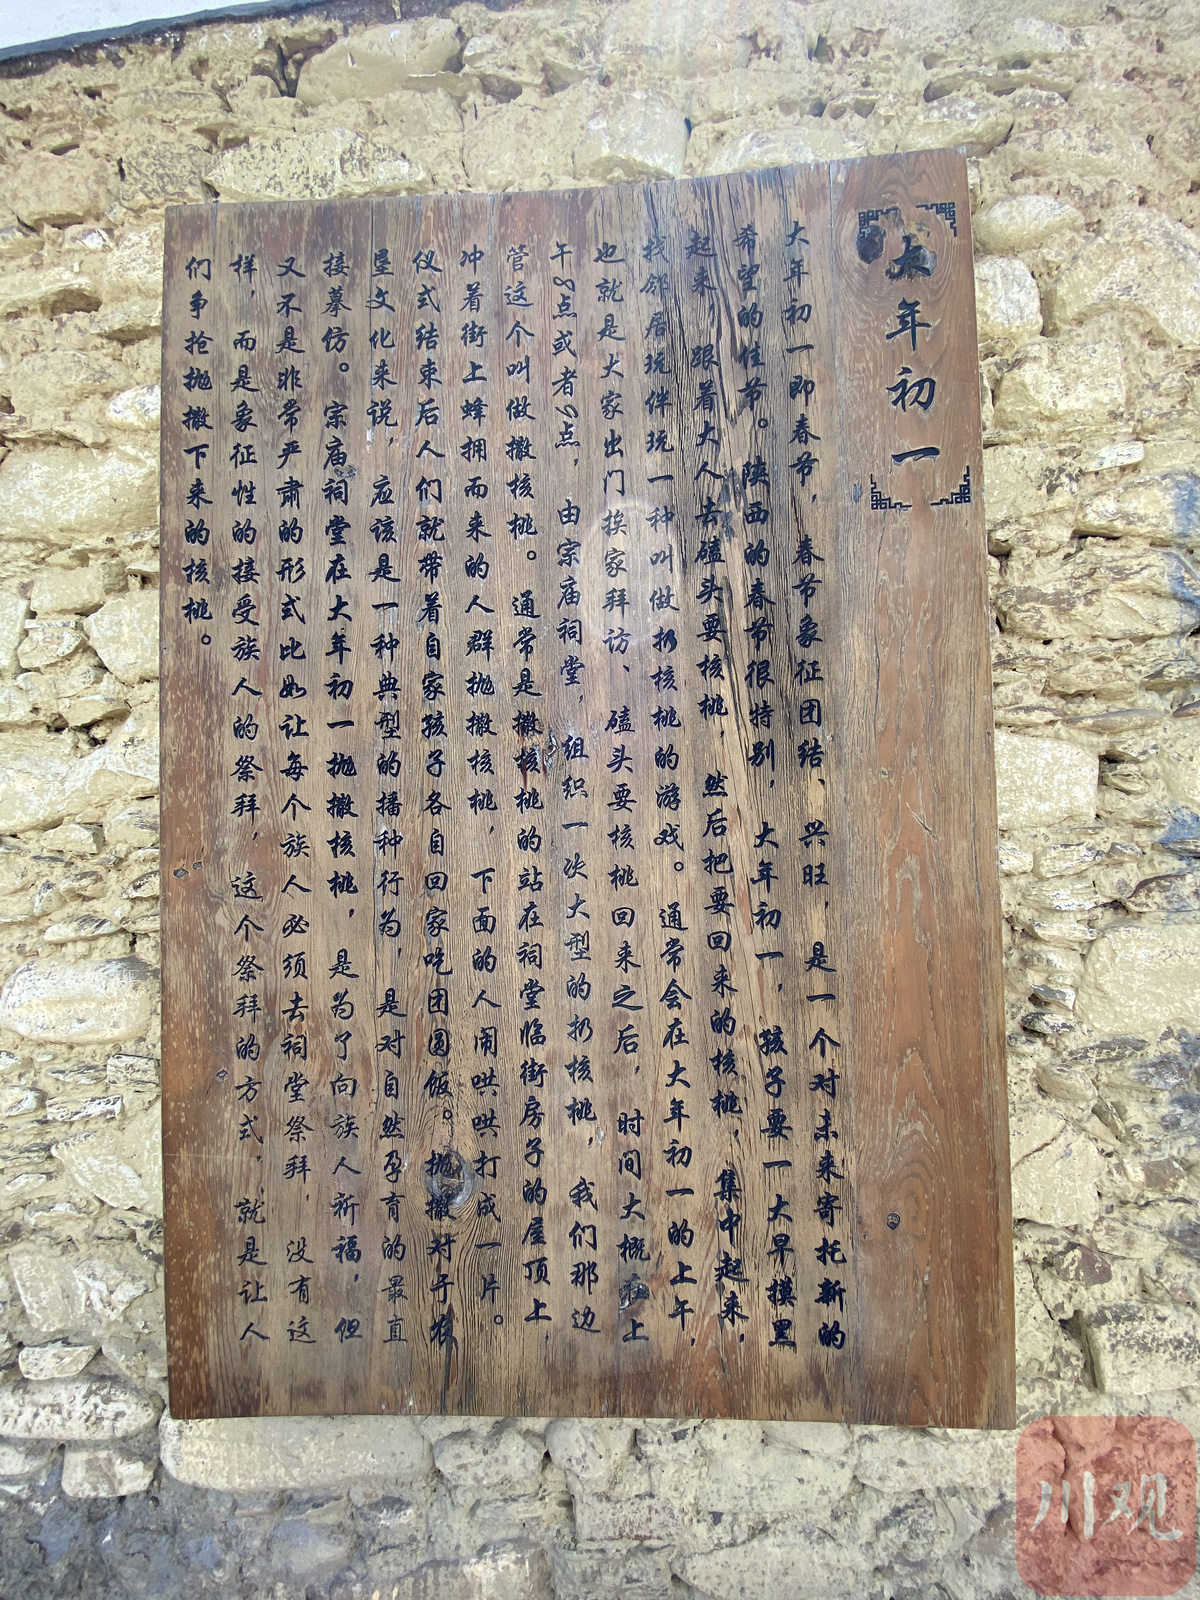 大年初一
大年初一即春节，春节象征团结、兴旺，是一个对未来寄托新的
希望的佳节。陕西的春节很特别，大年初一，孩子要一大早摸黑
起来，跟着大人去磕头要核桃，然后把要回来的核桃，集中起来，
找邻居玩伴玩一种叫做扔核桃的游戏。通常会在大年初一的上午，
也就是大家出门挨家拜访、磕头要核桃回来之后，时间大概在上
午8点或者9点，由宗庙祠堂，组织一次大型的扔核桃，我们那边
管这个叫做撒核桃。通常是撒核桃的站在祠堂临街房子的屋顶上，
冲着街上蜂拥而来的人群抛撒核桃，下面的人闹哄哄打成一片。
仪式结束后人们就带着自家孩子各自回家吃团圆饭。抛撒对于农
垦文化来说，应该是一种典型的播种行为，是对自然孕育的最直
接摹仿。宗庙祠堂在大年初一抛撒核桃，是为了向族人祈福，但
又不是非常严肃的形式比如让每个族人必须去祠堂祭拜，没有这
样，而是象征性的接受族人的祭拜，这个祭拜的方式，就是让人
们争抢抛撒下来的核桃。
川观